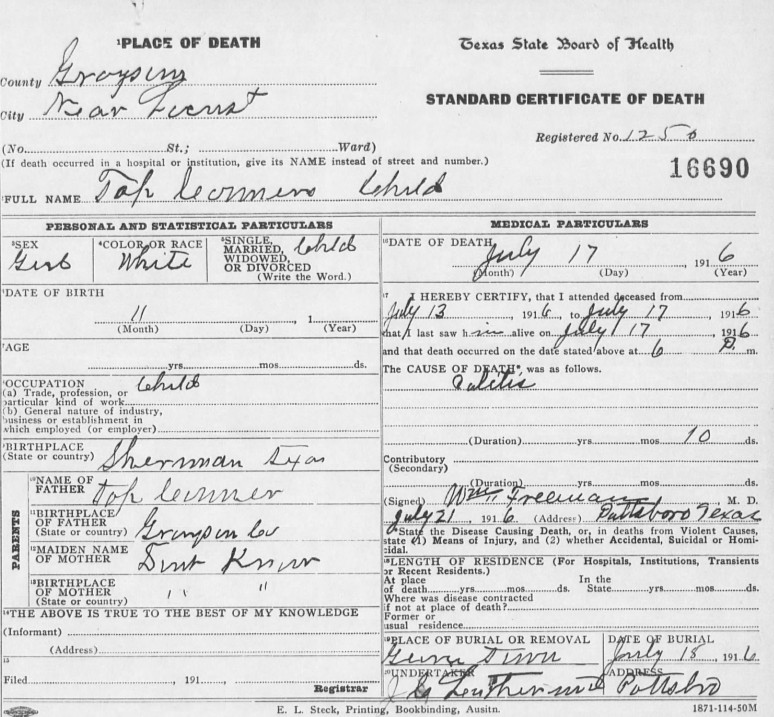 ¹PLACE OF DEATH
County Grayson
City Near Locust
(No. St.; Ward)
(If death occurred in a hospital or institution, give its NAME instead of street and number.)
Texas State Board of Health
STANDARD CERTIFICATE OF DEATH
Registered No. 1250
16690
²FULL NAME Child
PERSONAL AND STATISTICAL PARTICULARS
³SEX
⁴COLOR OR RACE White
⁵SINGLE, MARRIED, WIDOWED, OR DIVORCED (Write the Word.) Child
⁶DATE OF BIRTH
11 , 1
(Month) (Day) (Year)
⁷AGE
yrs. mos. ds.
⁸OCCUPATION Child
(a) Trade, profession, or
particular kind of work
(b) General nature of industry,
business or establishment in
which employed (or employer)
⁹BIRTHPLACE
(State or country) Sherman Texas
PARENTS
¹⁰NAME OF
FATHER
¹¹BIRTHPLACE
OF FATHER
(State or country) Grayson Co
¹²MAIDEN NAME
OF MOTHER Dont Know
¹³BIRTHPLACE
OF MOTHER
(State or country) " "
¹⁴THE ABOVE IS TRUE TO THE BEST OF MY KNOWLEDGE
(Informant)
(Address)
15
Filed , 191
Registrar
MEDICAL PARTICULARS
¹⁶DATE OF DEATH
July 17 , 1916
(Month) (Day) (Year)
17 I HEREBY CERTIFY, that I attended deceased from
July 13 , 1916, to July 17 , 1916
that I last saw h im alive on July 17 , 1916
and that death occurred on the date stated above at 6 P. m.
The CAUSE OF DEATH*, was as follows.
Colitis
(Duration) yrs. mos. 10 ds.
Contributory
(Secondary)
(Duration) yrs. mos. ds.
(Signed) Freeman , M. D.
July 21 , 1916 (Address) Pottsboro Texas
*State the Disease Causing Death, or, in deaths from Violent Causes,
state (1) Means of Injury, and (2) whether Accidental, Suicidal or Homi-
cidal.
¹⁸LENGTH OF RESIDENCE (For Hospitals, Institutions, Transients
or Recent Residents.)
At place In the
of death yrs. mos. ds. State yrs. mos. ds.
Where was disease contracted
if not at place of death?
Former or
usual residence
¹⁹PLACE OF BURIAL OR REMOVAL
DATE OF BURIAL
July 18 , 1916
²⁰UNDERTAKER
ADDRESS
Pottsboro
E. L. Steck, Printing, Bookbinding, Austin.
1871-114-50M